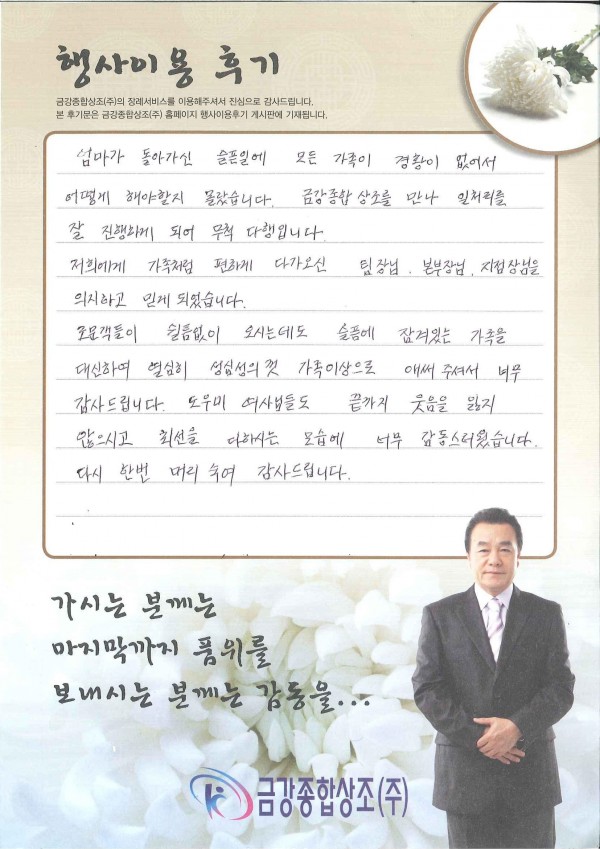 행사이용 후기
금강종합상조(주)의 장례서비스를 이용해주셔서 진심으로 감사드립니다.
본 후기문은 금강종합상조(주) 홈페이지 행사이용후기 게시판에 기재됩니다.
엄마가 돌아가신 슬픈일에 모든 가족이 경황이 없어서
어떻게 해야할지 몰랐습니다. 금강종합상조를 만나 일처리를
잘 진행하게 되어 무척 다행입니다.
저희에게 가족처럼 편하게 다가오신 팀장님, 본부장님, 지점장님을
의시하고 믿게 되었습니다.
조문객들이 쉴틈없이 오시는데도 슬픔에 잠겨있는 가족을
대신하여 열심히 성심성의껏 가족이상으로 애써 주셔서 너무
감사드립니다. 도우미 여사님들도 끝까지 웃음을 잃지
않으시고 최선을 다하시는 모습에 너무 감동스러웠습니다.
다시 한번 머리 숙여 감사드립니다.
가시는 분께는
마지막까지 품위를
보내시는 분께는 감동을...
금강종합상조(주)